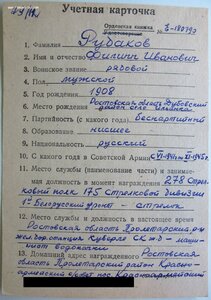 Учетная карточка
Орденская книжка З-180793
Удостоверение
1. Фамилия Рубаков
2. Имя и отчество Филипп Иванович
3. Воинское звание рядовой
4. Пол мужской
5. Год рождения 1908
6. Место рождения Ростовская область
7. Партийность (с какого года) беспартийный
8. Образование низшее
9. Национальность русский
10. С какого года в Советской Армии
11. Место службы (наименование части) и зани-
маемая должность в момент награждения 278 Стрел-
ковый полк 175 Стрелковой Дивизии
1й Белорусский фронт - стрелок
12. Место службы и должность в настоящее время
Ростовская область Пролетарский р-н
жел. дор. станция Куберле СКЖД - маши-
нист
13. Домашний адрес награжденного Ростовская
область Пролетарский район Красно-
армейский